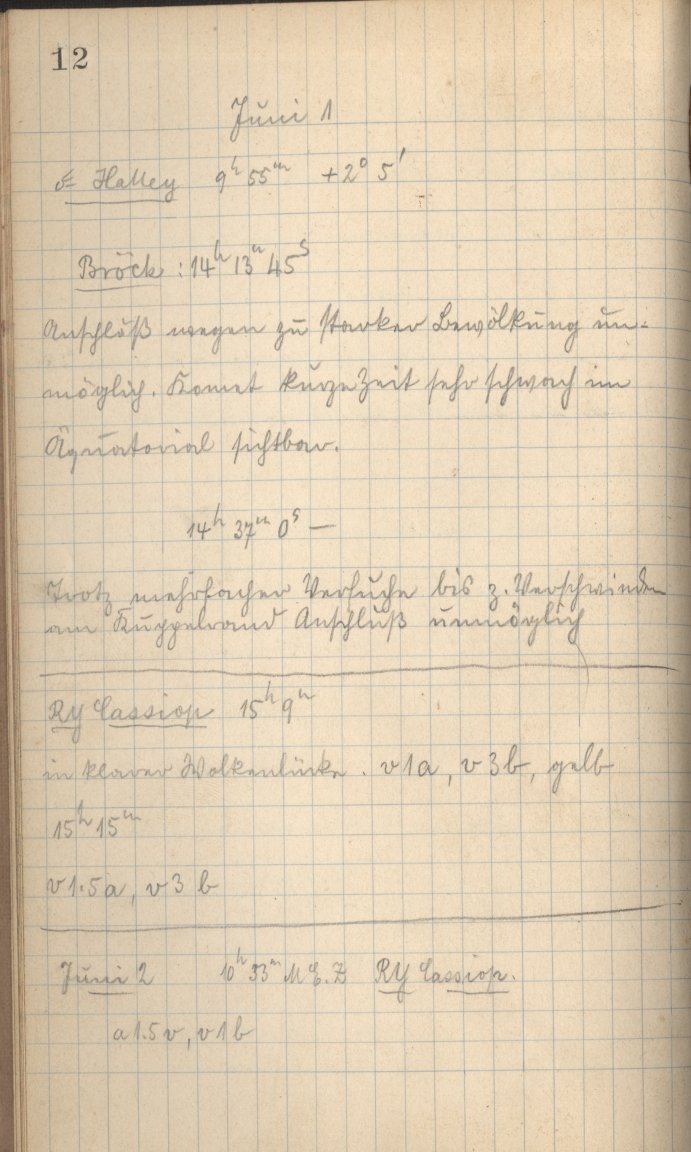 12
Juni 1
☄ Halley 9h 55m +2° 5'
Bröck : 14h 13m 45s
Anschluß wegen zu starker Bewölkung un-
möglich. Komet kurze Zeit sehr schwach im
Äquatorial sichtbar.
14h 37m 0s —
Trotz mehrfacher Versuche bis z. Verschwinden
am Kuppelrand Anschluß unmöglich
RY Cassiop 15h 9m
in klarer Wolkenlücke. v1a, v3b, gelb
15h 15m
v1.5a, v3b
Juni 2 10h 33m M.E.Z RY Cassiop.
a1.5v, v1b